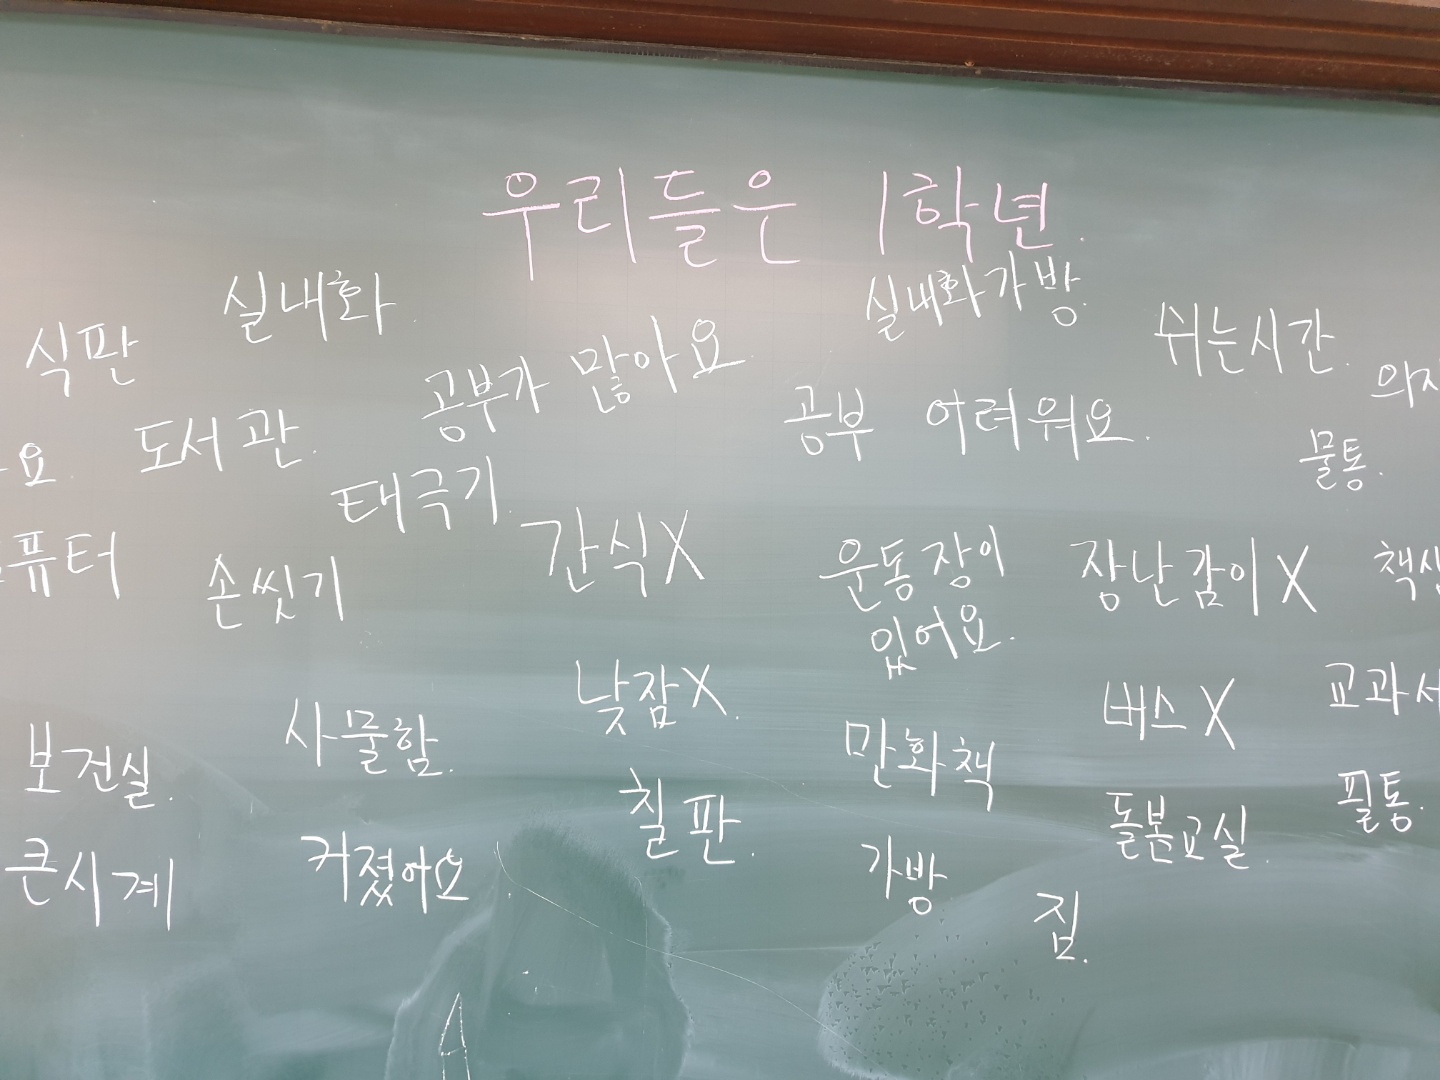 우리들은 1학년.
실내화.
실내화가방.
식판
공부가 많아요.
쉬는시간.
도서관.
공부 어려워요.
요.
물통.
태극기.
간식X
퓨터
손씻기
운동장이
있어요.
장난감이X
낮잠X.
버스X
사물함.
보건실.
만화책
칠판.
돌봄교실.
필통.
큰시계
커졌어요
가방
집.